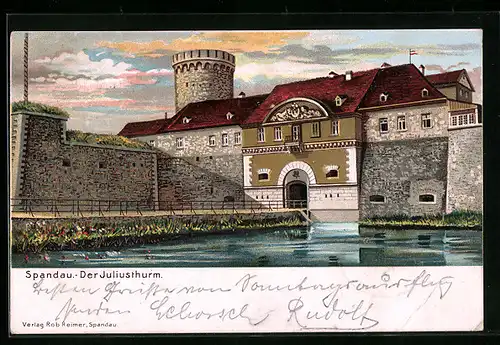 Spandau.- Der Juliusthurm.
Besten Grüsse vom Sonntagsausflug
senden Rudolf
Verlag Rob. Reimer, Spandau.